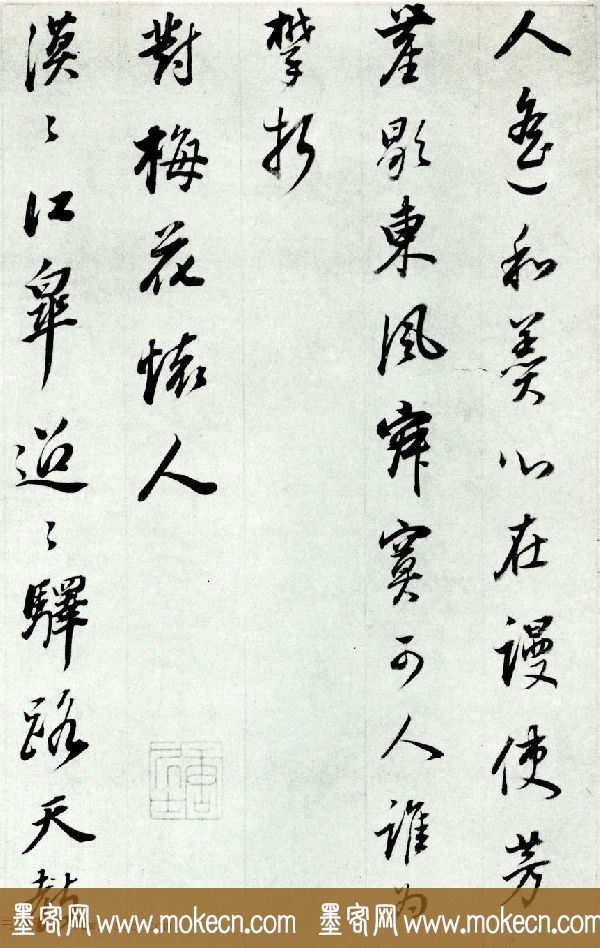 人和羹心在謾使芳
塵歇東風寂寞可人誰為
攀折
對梅花懷人
漠〻江皋迢〻驛路天教
墨客网 www.mokecn.com 墨客网 www.mokecn.com